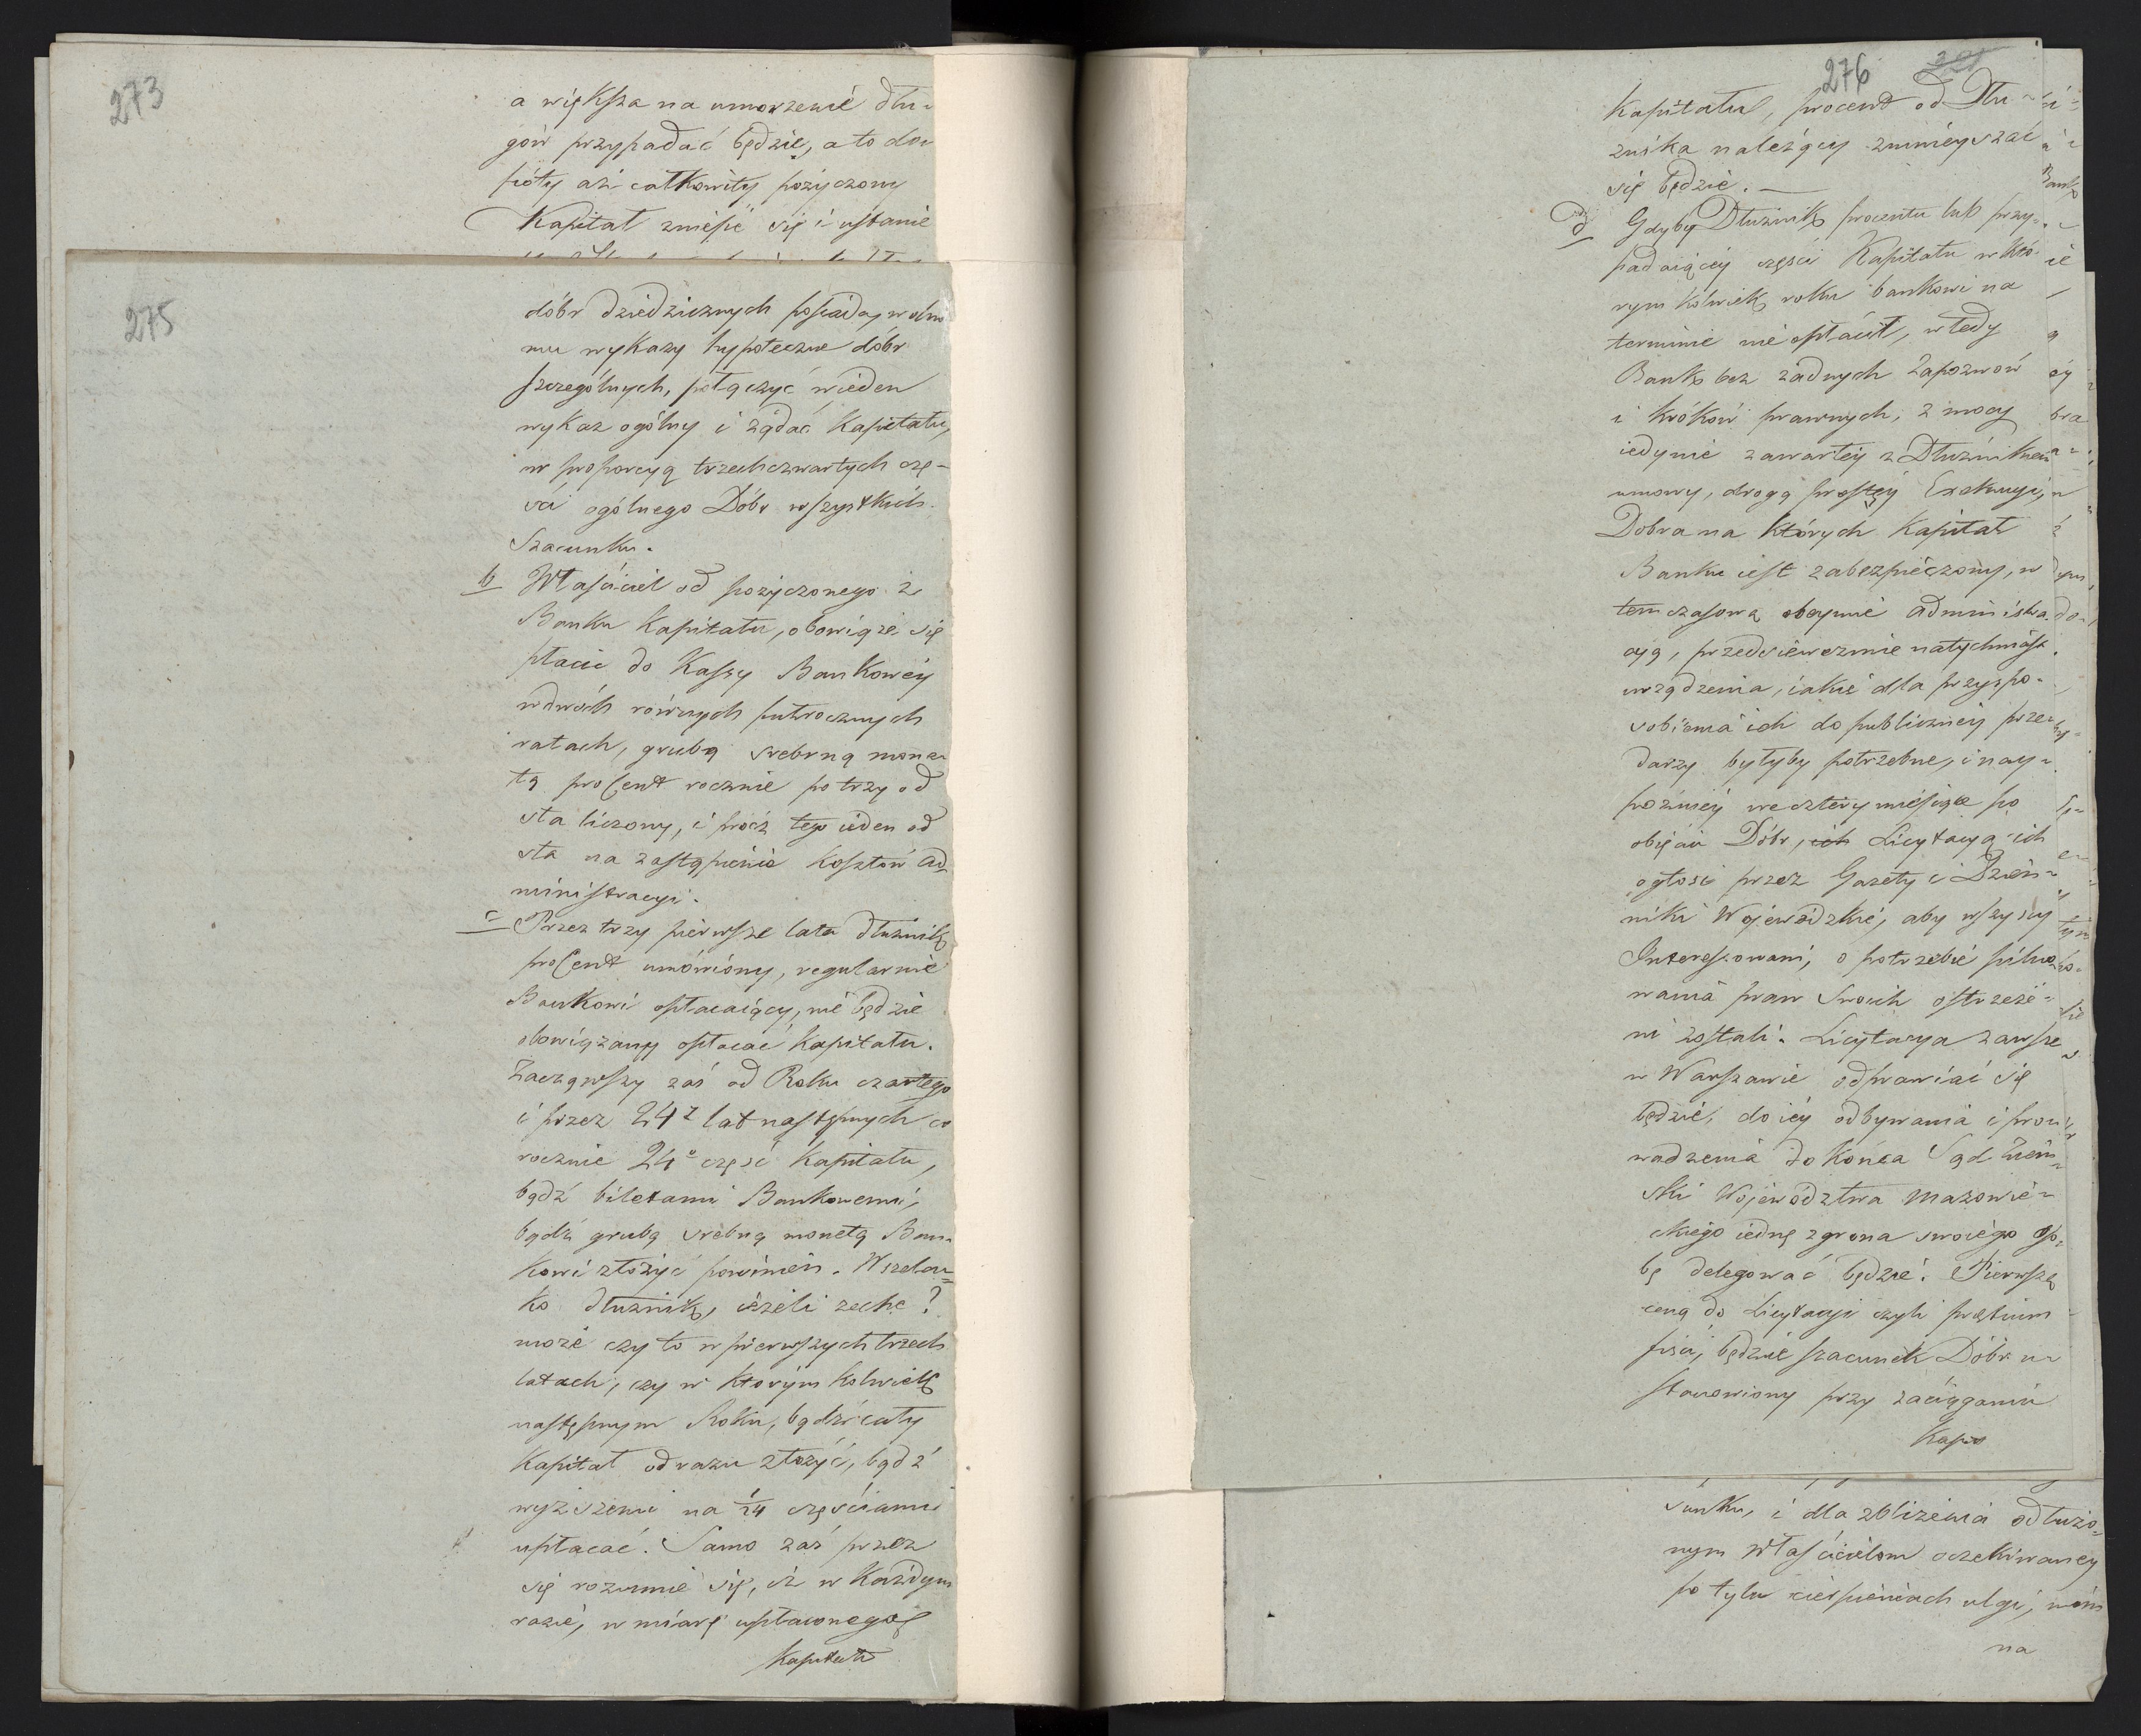 273
a większa na umorzenie dłu-
gów przypadać będzie, a to do-
póty aż całkowity pożyczony
Kapitał zniesie się i ustanie
275
dóbr dziedzicznych posiada, wolno
mu wykazy hypoteczne dóbr
szczególnych, połączyć wieden
wykaz ogólny i żądać Kapitału,
w proporcyą trzech czwartych czę-
ści ogólnego Dóbr wszystkich
Szacunku.
b Właściciel od pożyczonego z
Banku Kapitału, obowiąże się
płacić do Kassy Bankowéy
w dwóch równych półrocznych
ratach, grubą srebrną mone-
tą procent rocznie po trzy od
sta liczony, i prócz tego ieden od
sta na zastąpienie kosztów Ad-
ministracyi.
c Przez trzy pierwsze lata dłużnik
procent umówiony, regularnie
Bankowi opłacaiący, nie będzie
obowiązany opłacać Kapitału.
Zacząwszy zaś od Roku czwartego
i przez 24 lat następnych co
rocznie 24 część Kapitału,
bądź biletami Bankowemi,
bądź grubą srebrną monetą Ban-
kowi złożyć powinien. Wszela-
ko dłużnik, ieżeli zechce
może czy to w pierwszych trzech
latach, czy w którym kolwiek
następnym Roku, bądź cały
Kapitał od razu złożyć, bądź
wyższemi na 1/24 częściami
upłacać. Samo zaś przez
się rozumie się, iż w każdym
razie, w miarę upłaconego
Kapitału
276
Kapitału, procent od Dłu-
żnika należący zmniéyszać
się będzie.
d Gdyby Dłużnik procentu lub przy-
padaiącéy części Kapitału w któ-
rym kolwiek roku bankowi na
terminie nie opłacił, wtedy
Bank bez żadnych Zapozwów
i kroków prawnych, z mocy
iedynie zawartéy z Dłużnikiem
umowy, drogą prostéy Exekucyi,
Dobra na których Kapitał
Banku iest zabezpieczony, w
tem czasową obeymie administra-
cyą, przedsiewezmie natychmiast
urządzenia, iakie dla przyspo-
sobienia ich do publicznéy prze-
darzy byłyby potrzebne, i nay-
poźniéy we cztery miesiące po
obięciu Dóbr, ich Licytacyą ich
ogłosi przez Gazety i Dzien-
niki Wojewódzkie, aby wszyscy
Interessowani, o potrzebie pilno-
wania praw swoich ostrzeże-
ni zostali. Licytacya zawsze
w Warszawie odprawiać się
będzie, do iéy odbywania i pro-
wadzenia do końca Sąd Ziem-
ski Województwa Mazowie-
ckiego iednę z grona swoiego oso-
bę delegować będzie. Pierwszą
ceną do Licytacyi czyli pretium
fisci, będzie szacunek Dóbr u-
stanowiony przy zaciąganiu
Kapi-
sunku, i dla zbliżenia odłużo-
nym właścicielom oczekiwaney
po tylu cierpieniach ulgi,
na